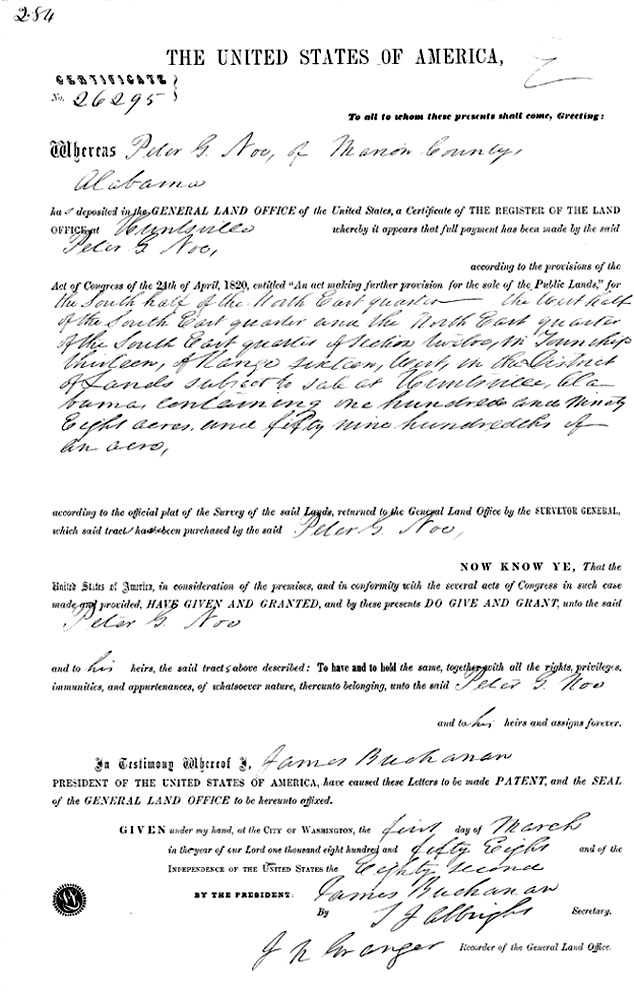 284
THE UNITED STATES OF AMERICA,
CERTIFICATE
No. 26295
To all to whom these presents shall come, Greeting:
Whereas Peter G. Noe, of Marion County,
Alabama
ha s deposited in the GENERAL LAND OFFICE of the United States, a Certificate of THE REGISTER OF THE LAND
OFFICE at Huntsville whereby it appears that full payment has been made by the said
Peter G. Noe,
according to the provisions of the
Act of Congress of the 24th of April, 1820, entitled "An act making further provision for the sale of the Public Lands," for
the South half of the North East quarter the West half
of the South East quarter and the North East quarter
of the South East quarter of Section twelve, in Township
thirteen, of Range sixteen, West, in the District
of Lands subject to sale at Huntsville, Ala
bama, containing one hundred and Ninety
Eight acres, and fifty nine hundredths of
an acre,
according to the official plat of the Survey of the said Lands, returned to the General Land Office by the SURVEYOR GENERAL,
which said tract has been purchased by the said Peter G. Noe,
NOW KNOW YE, That the
United States of America, in consideration of the premises, and in conformity with the several acts of Congress in such case
made and provided, HAVE GIVEN AND GRANTED, and by these presents DO GIVE AND GRANT, unto the said
Peter G. Noe
and to his heirs, the said tracts above described: To have and to hold the same, together with all the rights, privileges,
immunities, and appurtenances, of whatsoever nature, thereunto belonging, unto the said Peter G. Noe
and to his heirs and assigns forever.
In Testimony Whereof I, James Buchanan
PRESIDENT OF THE UNITED STATES OF AMERICA, have caused these Letters to be made PATENT, and the SEAL
of the GENERAL LAND OFFICE to be hereunto affixed.
GIVEN under my hand, at the CITY OF WASHINGTON, the first day of March
in the year of our Lord one thousand eight hundred and fifty Eight and of the
INDEPENDENCE OF THE UNITED STATES the Eighty second
BY THE PRESIDENT: James Buchanan
By T J Albright Secretary.
J N Granger Recorder of the General Land Office.